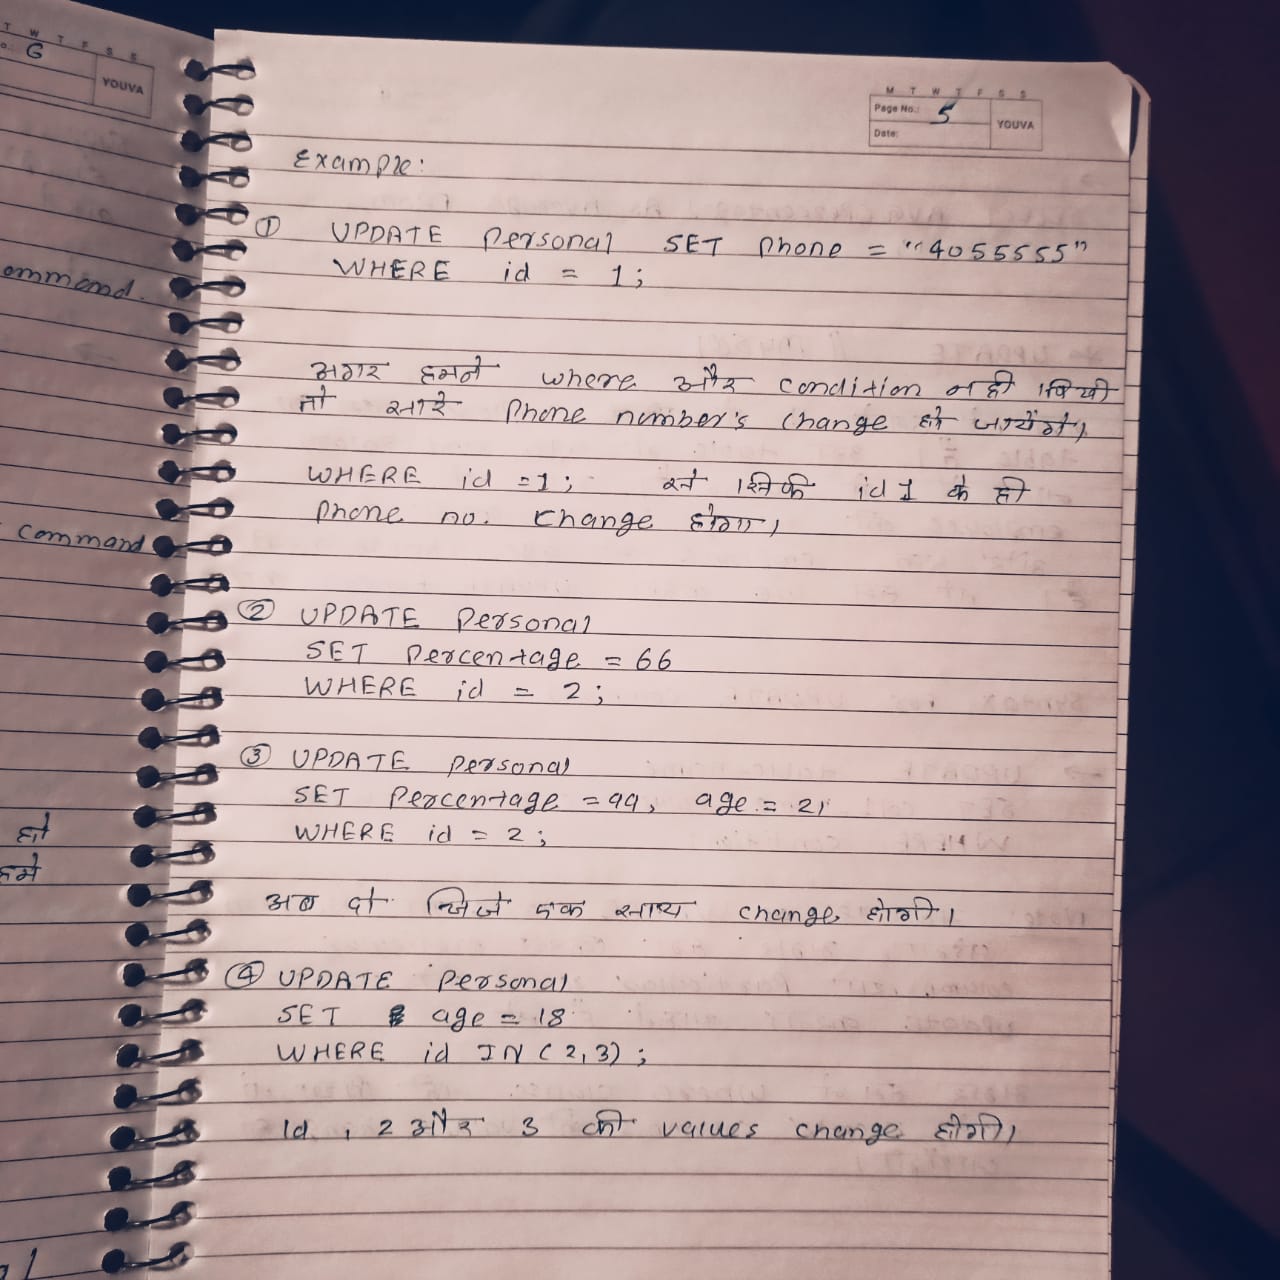 T W T F S S
o. G
YOUVA
M T W T F S S
Page No.: 5
YOUVA
Date:
Example:
① UPDATE Personal SET Phone = "4055555"
WHERE id = 1;
ommand.
अगर हमने where और condition नही
तो सारे Phone number's change हो जायेंगे।
WHERE id = 1; से सिर्फ id 1 के ही
Phone no. change होगा।
command
② UPDATE Personal
SET Percentage = 66
WHERE id = 2;
③ UPDATE Personal
SET Percentage = 99, age = 21
WHERE id = 2;
हो
हमे
अब दो चिजे एक साथ change होगी।
④ UPDATE Personal
SET age = 18
WHERE id IN (2,3);
Id , 2 और 3 की values change होगी।